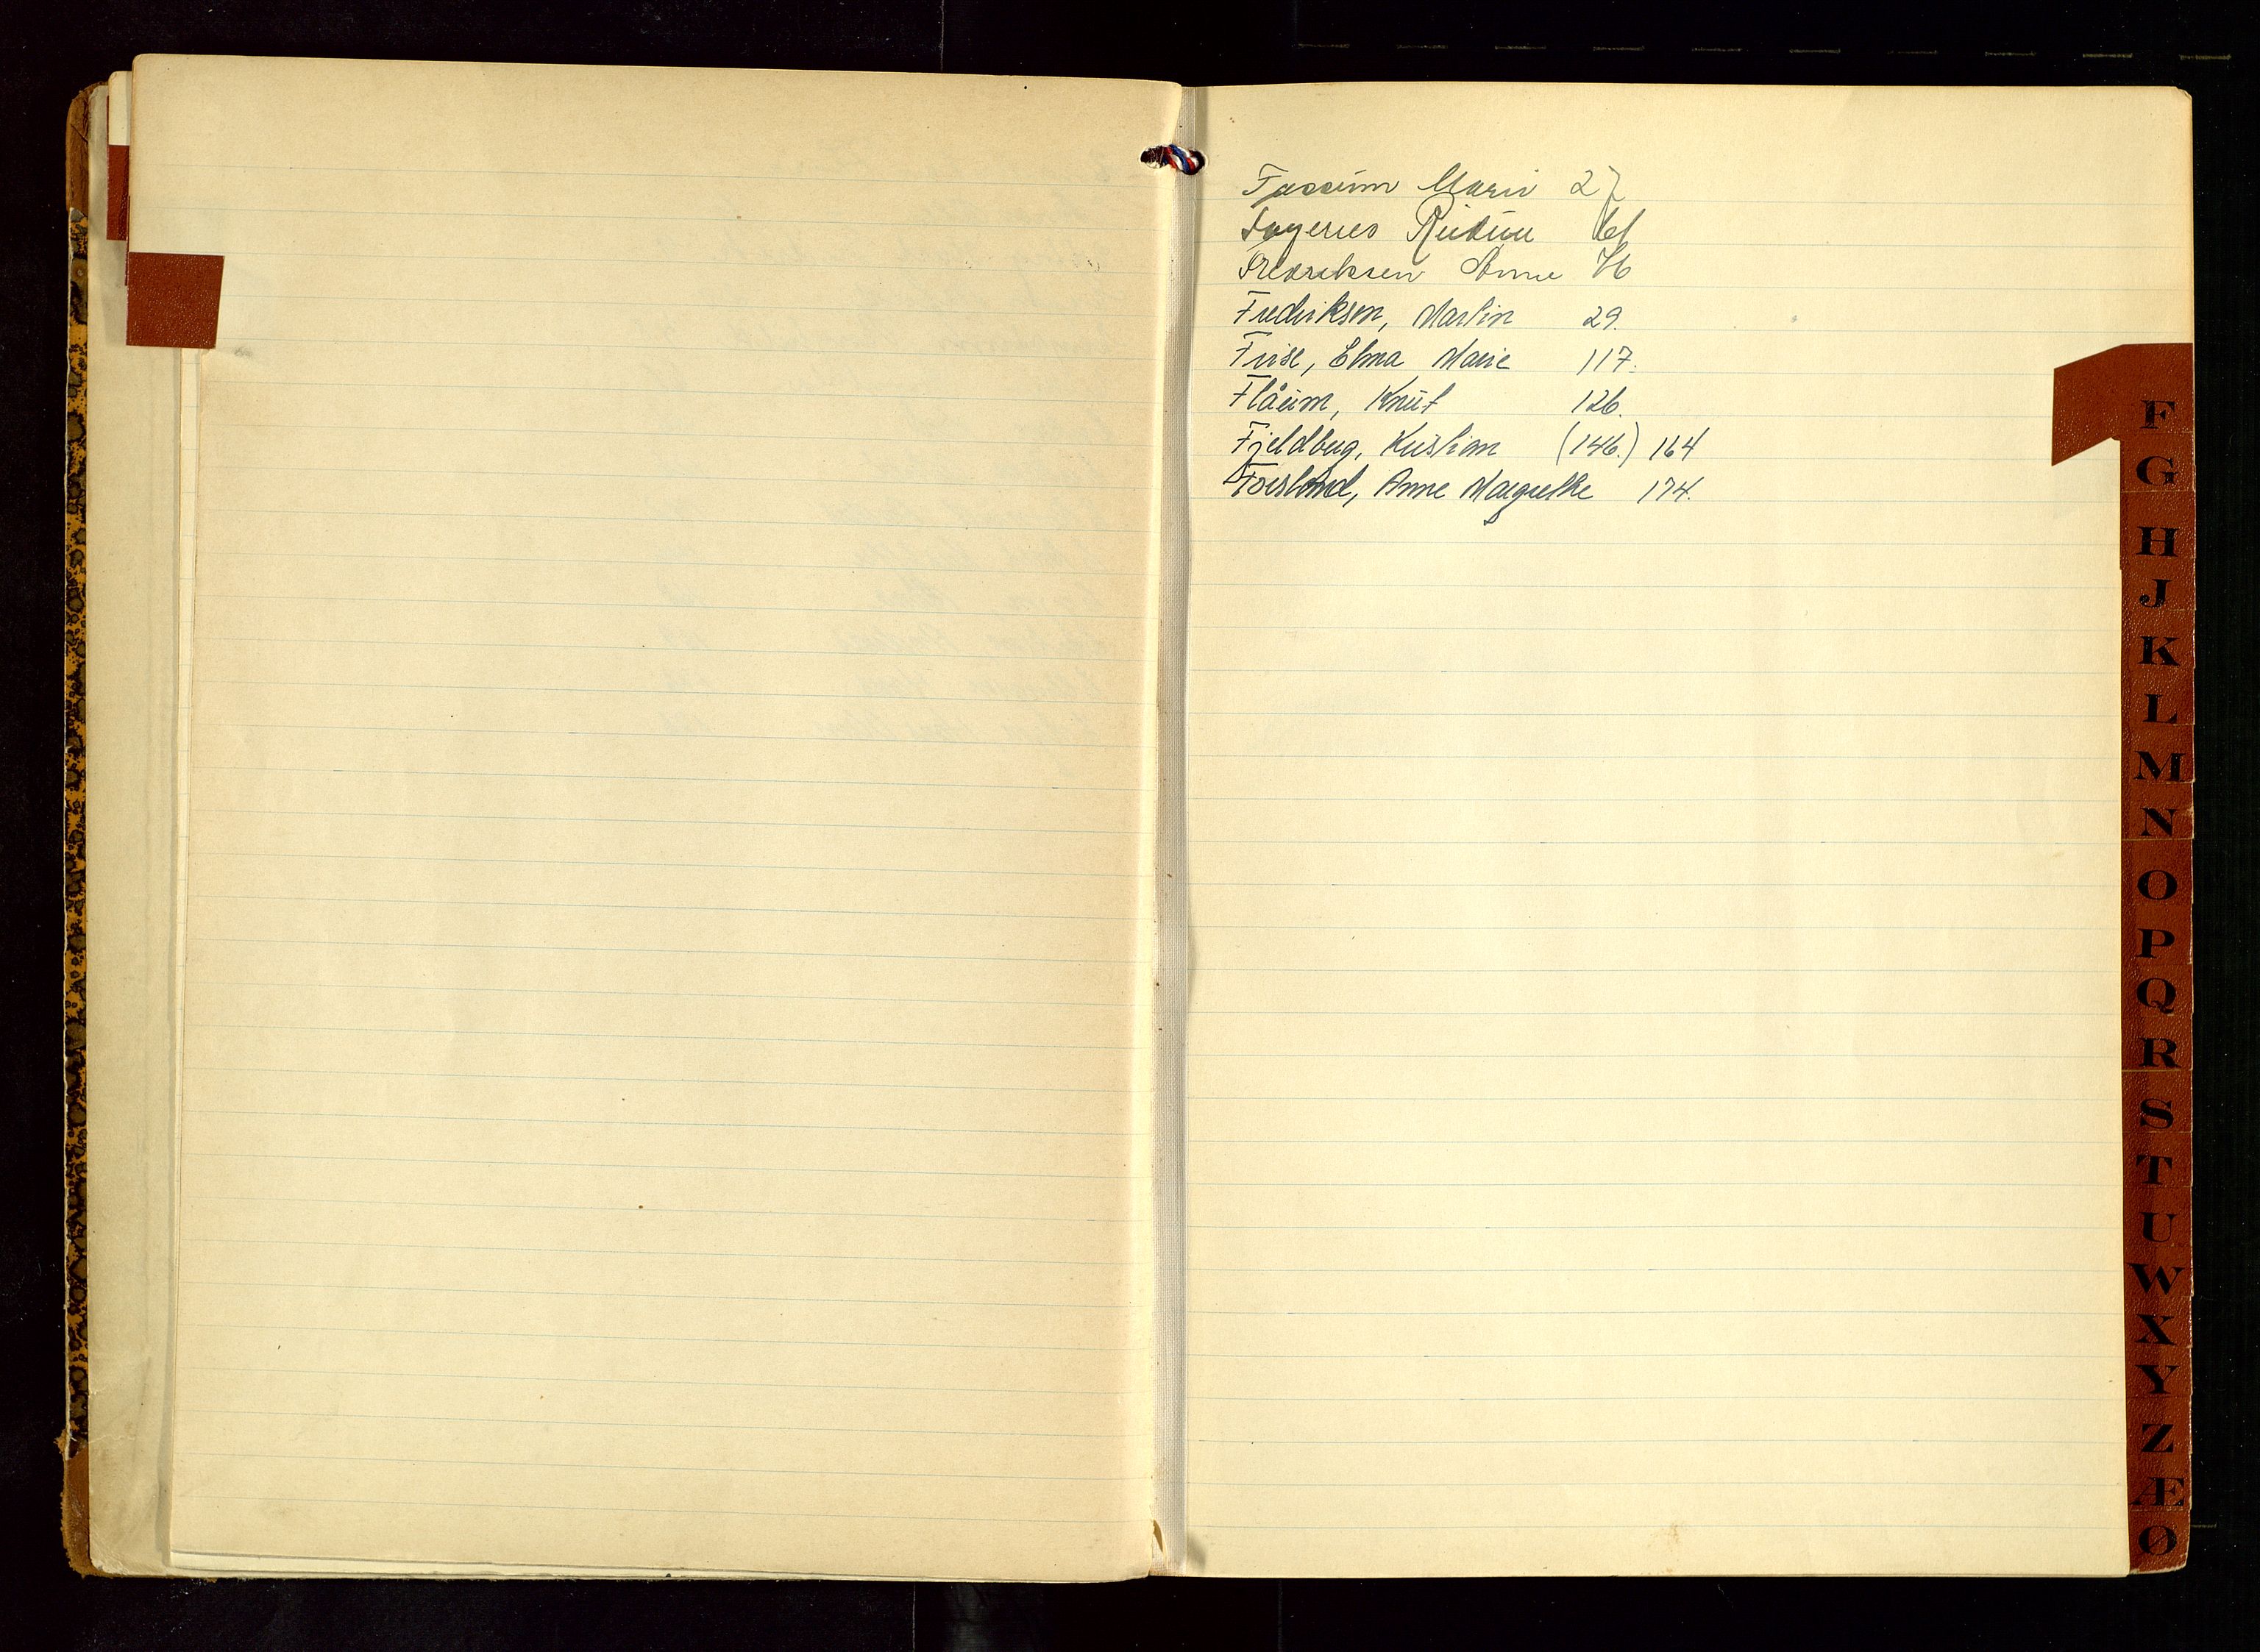 Fossum Marie 27
Fagernes 61
Fredriksen Anne 76
Fredriksen, Martin 29.
Frise, Elma Marie 117.
Flåum, Knut 126.
Fjeldberg, Kristian (146.) 164
Forsland, Anne Margrethe 174.
F
G
H
J
K
L
M
N
O
P
Q
R
S
T
U
W
X
Y
Z
Æ
Ø